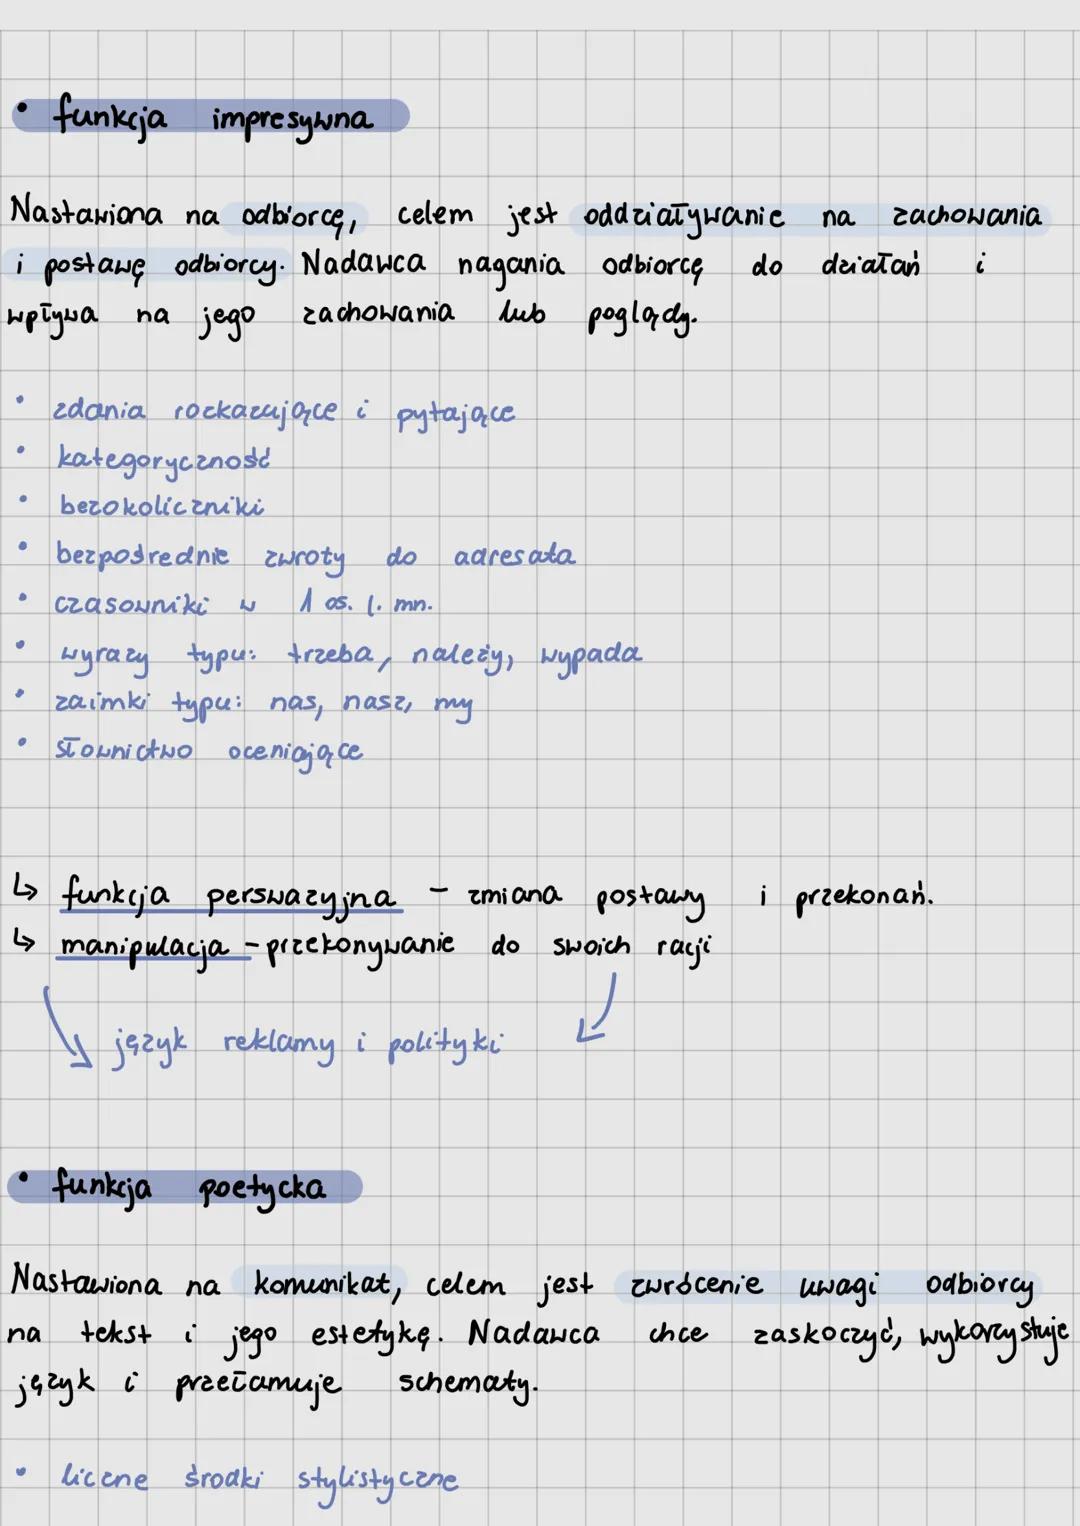 • funkcja impresywna
Nastawiona na odbiorcę, celem jest oddziaływanie na zachowania
i postawę odbiorcy. Nadawca nagania odbiorcę do działań i
wpływa na jego zachowania lub poglądy.
• zdania rozkazujące i pytające
• kategoryczność
• bezokoliczniki
• bezpośrednie zwroty do adresata
• czasowniki w 1 os. l. mn.
• wyrazy typu: trzeba, należy, wypada
• zaimki typu: nas, nasz, my
• słownictwo oceniające
↳ funkcja perswazyjna – zmiana postawy i przekonań.
↳ manipulacja – przekonywanie do swoich racji
język reklamy i polityki
• funkcja poetycka
Nastawiona na komunikat, celem jest zwrócenie uwagi odbiorcy
na tekst i jego estetykę. Nadawca chce zaskoczyć, wykorzystuje
język i przełamuje schematy.
• liczne środki stylistyczne